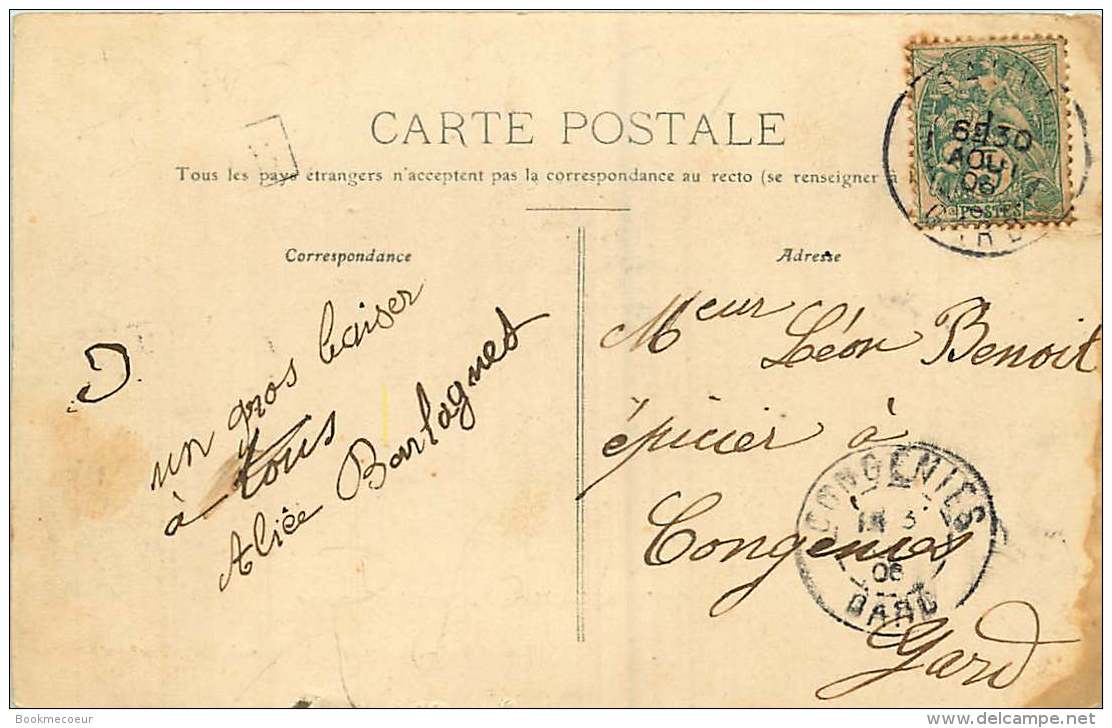 CARTE POSTALE
Tous les pays étrangers n'acceptent pas la correspondance au recto (se renseigner à
Correspondance
un gros baiser
à tous
Alice Barlagnet
Adresse
Meur Léon Benoit
épicier à
Congenies
Gard
6E30
AOUT
06
GARD
POSTES
CONGENIES
3
06
GARD
Bookmecoeur
www.delcampe.net